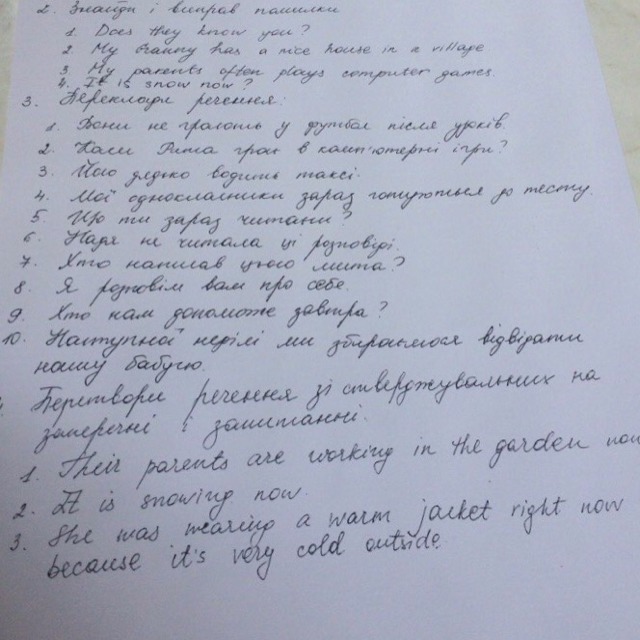 2. Знайди і виправ помилки
1. Does they know you?
2. My Granny has a nice house in a village
3. My parents often plays computer games.
4. It is snow now?
3. Переклади речення:
1. Вони не грають у футбол після уроків.
2. Коли Рита грає в комп'ютерні ігри?
3. Його дядько водить таксі.
4. Мої однокласники зараз готуються до тесту.
5. Що ти зараз читаєш?
6. Надя не читала ці розповіді.
7. Хто написав цього листа?
8. Я розповім вам про себе.
9. Хто нам допоможе завтра?
10. Наступної неділі ми збираємося відвідати
нашу бабусю.
Перетвори речення зі стверджувальних на
заперечні і запитанні.
1. Their parents are working in the garden now
2. It is snowing now.
3. She was wearing a warm jacket right now
because it's very cold outside.